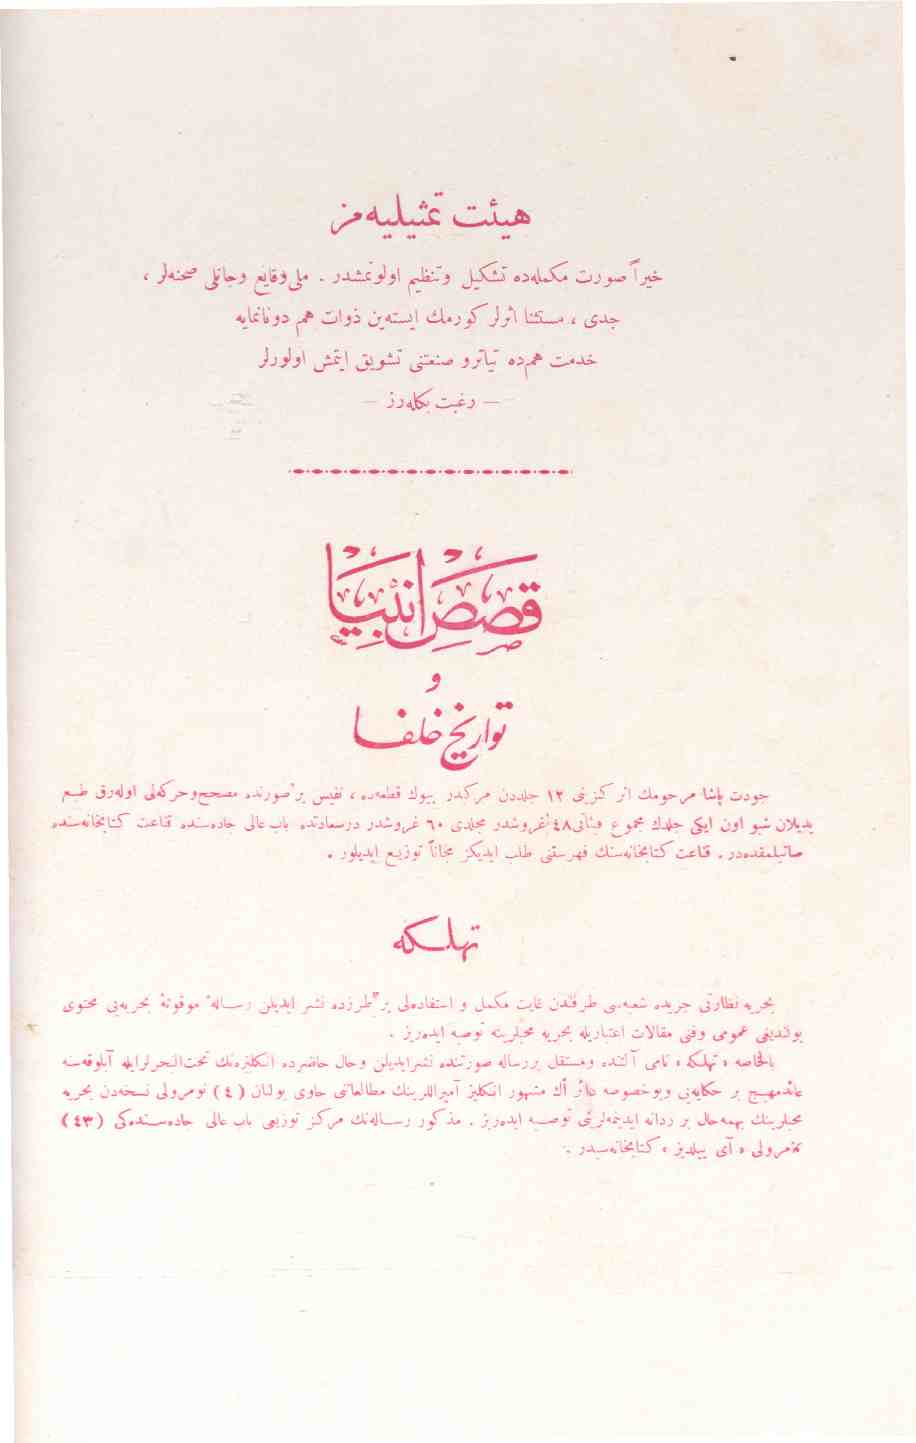 هيئت تمثيليه‌مز
خيراً صورت مكمله‌ده تشكيل وتنظيم اولونمشدر . ملى وقايع وحاتلى صحنه‌لر ،
جدى ، مستثنا اثرلر كورمك ايسته‌ين ذوات هم دونانمايه
خدمت هم‌ده تياترو صنعتنى تشويق ايتمش اولورلر
— رغبت بكله‌رز —
قصص انبيا
و
تواريخ خلفا
جودت پاشا مرحومك اثر كزينى ١٢ جلددن مركبدر بيوك قطعه‌ده ، نفيس بر صورتده مصحح وحركه‌لى اوله‌رق طبع
يديلان شبو اون ايكى جلدك مجموع فيئاتى ٤٨ غروشدر مجلدى ٦٠ غروشدر درسعادتده باب عالى جاده‌سنده قناعت كتابخانه‌سنده
صاتيلمقده‌در . قناعت كتابخانه‌سنك فهرستنى طلب ايديكز مجاناً توزيع ايديلور .
تهلكه
بحريه نظارتى جريده شعبه‌سى طرفندن غايت مكمل و استفاده‌لى بر طرزده نشر ايديلن رساله موقوتهٔ بحريه‌يى محتوى
بولنديغى عمومى وفنى مقالات اعتباريله بحريه محبلرينه توصيه ايده‌ريز .
بالخاصه « تهلكه » نامى آلتنده ومستقل بررساله صورتنده نشرايديلن وحال حاضرده انكلتره‌نك تحت‌البحرلرايله آبلوقه‌سنه
عائدمهيج بر حكايه‌يى وبوخصوصه دائر اك مشهور انكليز آميراللرينك مطالعاتنى حاوى بولنان ( ٤ ) نومرولى نسخه‌دن بحريه
محبلرينك بهمه‌حال بر ردانه ايدينمه‌لرينى توصيه ايده‌ريز . مذكور رساله‌نك مركز توزيعى باب عالى جاده‌سنده‌كى (٤٣)
نومرولى « آى ييلديز » كتابخانه‌سيدر .